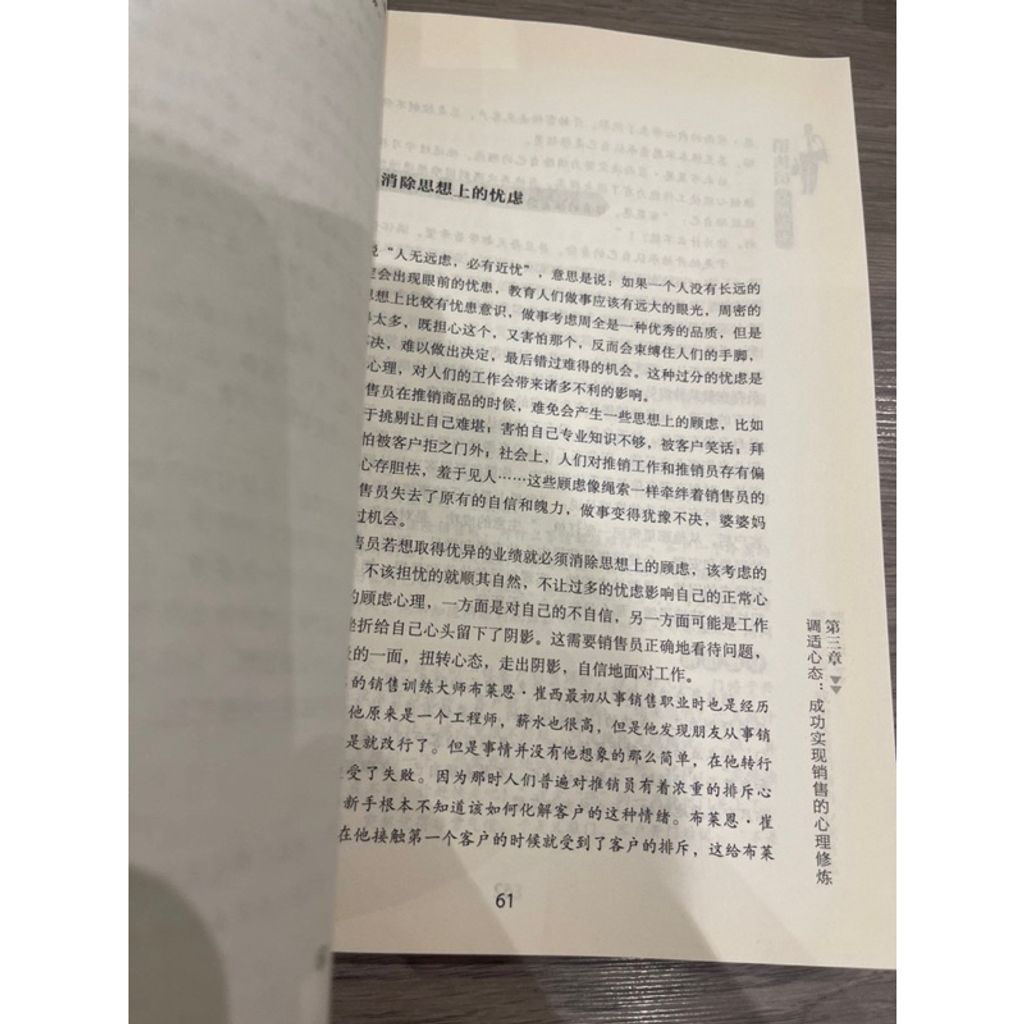 消除思想上的忧虑
“人无远虑，必有近忧”，意思是说：如果一个人没有长远的
会出现眼前的忧患，教育人们做事应该有远大的眼光，周密的
思想上比较有忧患意识，做事考虑周全是一种优秀的品质，但是
太多，既担心这个，又害怕那个，反而会束缚住人们的手脚，
决，难以做出决定，最后错过难得的机会。这种过分的忧虑是
心理，对人们的工作会带来诸多不利的影响。
售员在推销商品的时候，难免会产生一些思想上的顾虑，比如
于挑剔让自己难堪；害怕自己专业知识不够，被客户笑话；拜
怕被客户拒之门外；社会上，人们对推销工作和推销员存有偏
心存胆怯，羞于见人……这些顾虑像绳索一样牵绊着销售员的
售员失去了原有的自信和魄力，做事变得犹豫不决，婆婆妈
过机会。
售员若想取得优异的业绩就必须消除思想上的顾虑，该考虑的
不该担忧的就顺其自然，不让过多的忧虑影响自己的正常心
的顾虑心理，一方面是对自己的不自信，另一方面可能是工作
挫折给自己心头留下了阴影。这需要销售员正确地看待问题，
的一面，扭转心态，走出阴影，自信地面对工作。
的销售训练大师布莱恩·崔西最初从事销售职业时也是经历
他原来是一个工程师，薪水也很高，但是他发现朋友从事销
是就改行了。但是事情并没有他想象的那么简单，在他转行
受了失败。因为那时人们普遍对推销员有着浓重的排斥心
新手根本不知道该如何化解客户的这种情绪。布莱恩·崔
在他接触第一个客户的时候就受到了客户的排斥，这给布莱
第三章
调适心态：成功实现销售的心理修炼
61